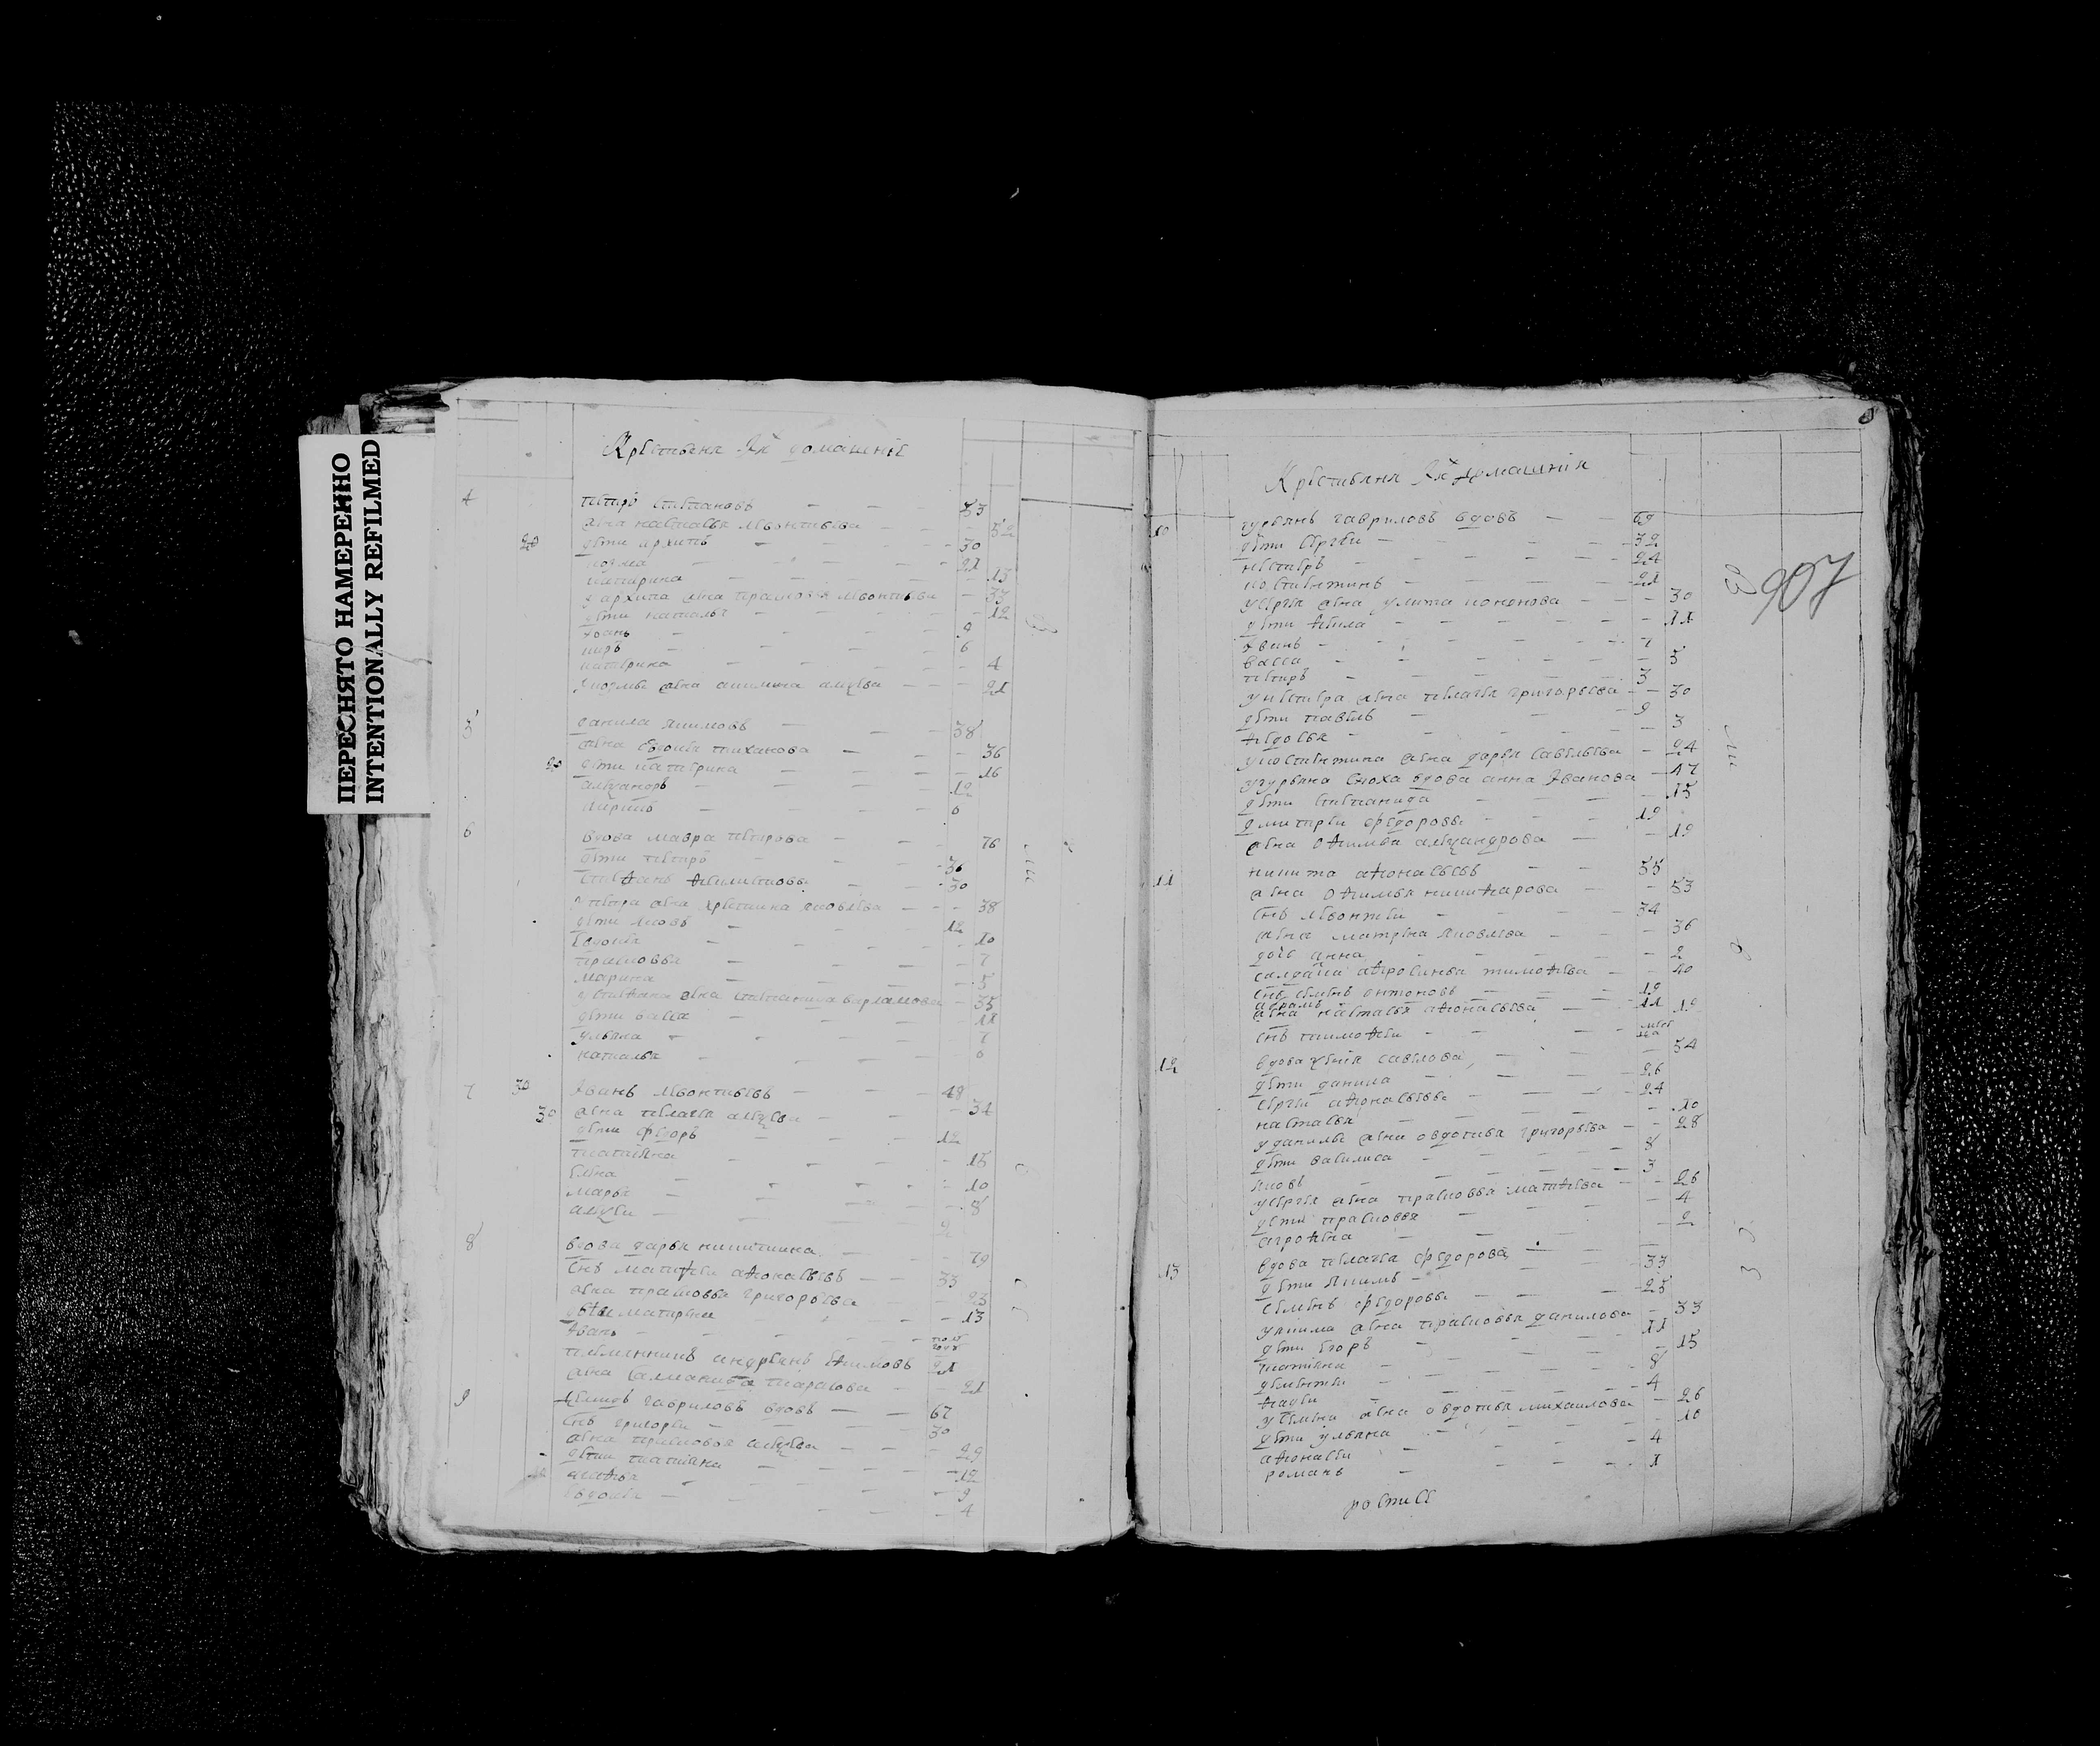 ПЕРЕСНЯТО НАМЕРЕННО
INTENTIONALLY REFILMED
Крестьяня Іх домашние
4 петръ степановъ 53
жена настасья леонтьева 52
дети архипъ 30
козма 21
катерина 13
у архипа жена прасковья леонтьева 33
дети наталья 12
іванъ 9
киръ 6
катерина 4
у козмы жена акилина алеѯева 21
5 данила якимовъ 38
жена евдокия тиханова 36
дети катерина 16
алеѯандръ 12
6
6 вдова мавра петрова 76
дети петръ 36
стеѳанъ 30
у петра жена христина яковлева 38
дети яковъ 12
евдокия 10
прасковья 7
марина 5
у стеѳана жена степанида варламова 35
дети васса 11
ульяна 7
наталья 6
7 30 Іванъ леонтьевъ 48
30 жена пелагея алеѯева 34
дети федоръ 12
татияна 15
елена 10
марья 8
алеѯеи 2
8 вдова дарья никитина 79
снъ матѳеи аѳонасьевъ 33
жена прасковья григорьева 23
дети матрена 13
іванъ полгода
племянникъ андреянъ 21
жена саламанида тарасова 21
9 гавриловъ вдовъ 67
снъ григореи 30
жена прасковья алеѯева 29
дети татияна 12
9
евдокия 4
Крестьяня Іх домашния
907
10 гурьянъ гавриловъ вдовъ 69
дети сергеи 32
нестеръ 24
костентинъ 21
у сергея жена улита кононова 30
дети ѳекла 11
іванъ 7
васса 5
петръ 3
у нестера жена пелагея григорьева 30
дети павелъ 9
ѳедосья 3
у костентина жена дарья савельева 24
у гурьяна сноха вдова анна Іванова 47
дети степанида 15
дмитреи федоровъ 19
жена оѳимья алеѯандрова 19
11 никита аѳонасьевъ 55
жена оѳимья никиѳарова 53
снъ леонтеи 34
жена матрена яковлева 36
дочь анна 2
салдатка аѳросинья тимоѳева 40
снъ семенъ онтоновъ 19
абрамъ 11
жена настасья аѳонасьева 19
снъ тимоѳеи
12 вдова ѯения савелова 54
дети данила 26
сергеи аѳонасьевы 24
настасья 10
у данилы жена овдотья григорьева 28
дети василиса 8
яковъ 3
у сергея жена прасковья матѳеева 26
дети прасковья 4
агроѳена 2
13 вдова пелагея федорова
дети якимъ 33
семенъ федоровы 25
у якима жена прасковья данилова 33
дети егоръ 11
татияна 15
дементеи 8
ѳадеи 4
у семена жена овдотья михаилова 26
дети ульяна 10
аѳонасеи 4
романъ 1